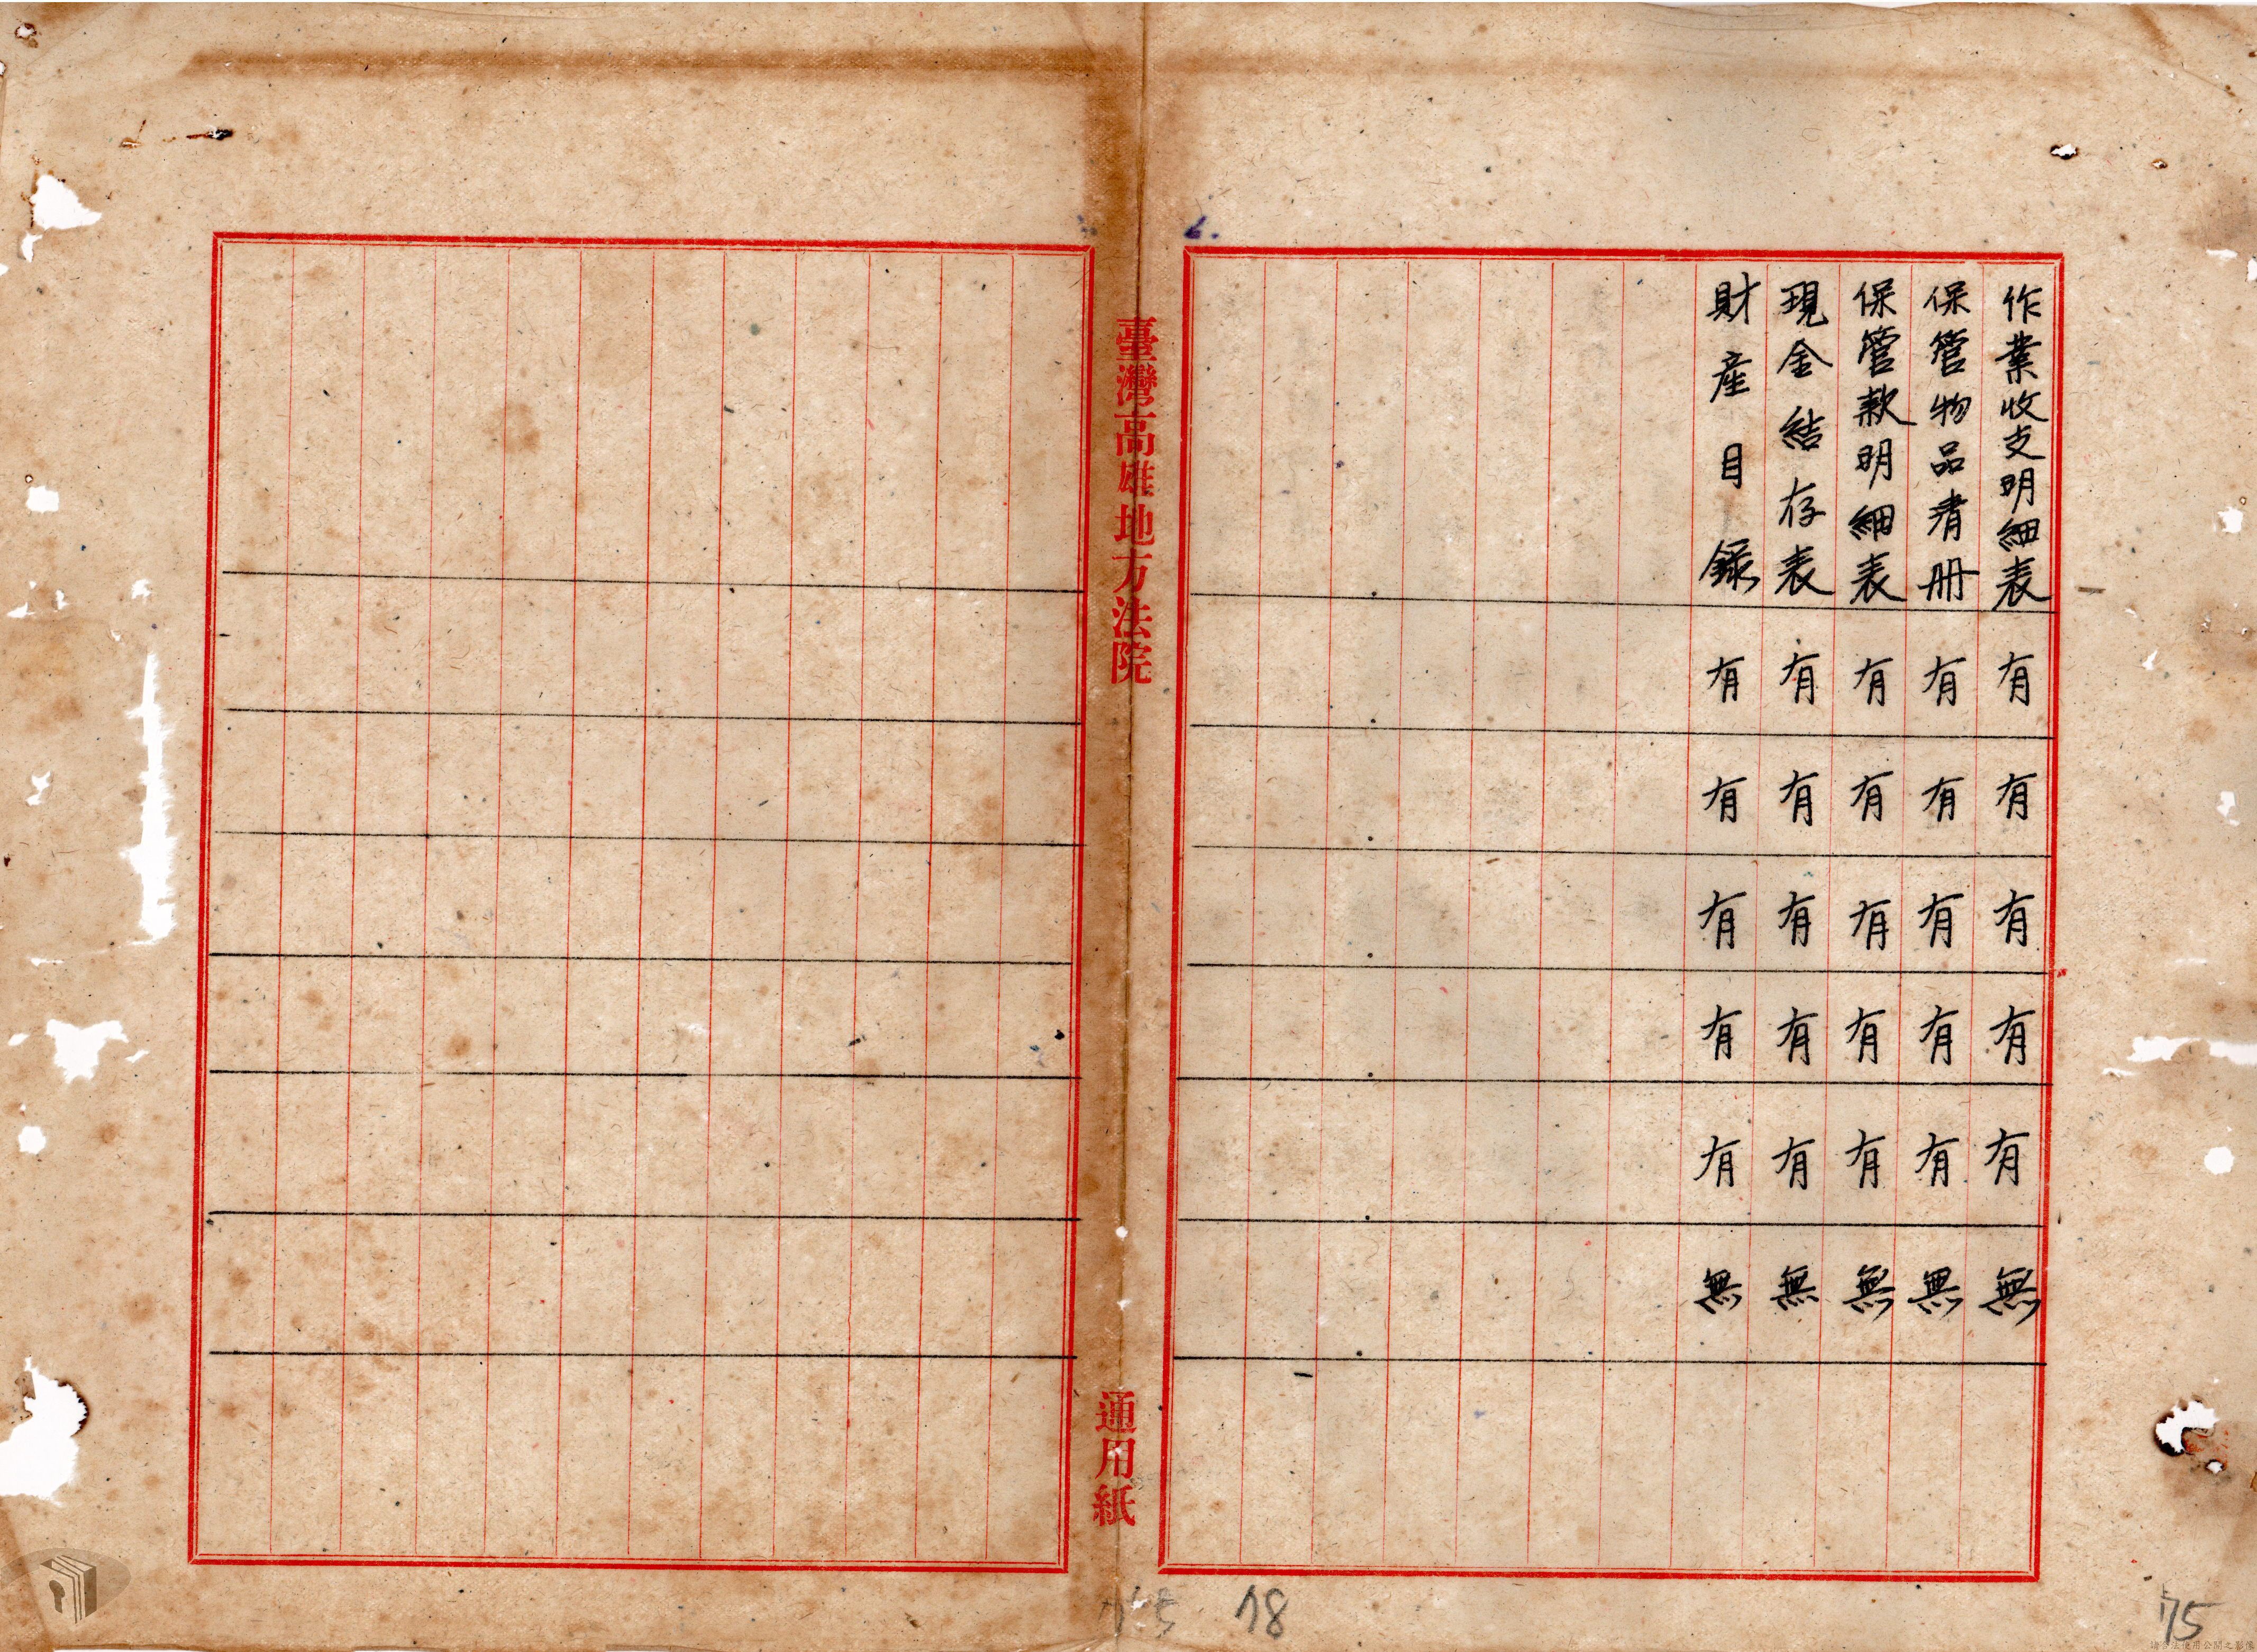 作業收支明細表 有 有 有 有 有 無
保管物品清册 有 有 有 有 有 無
保管款明細表 有 有 有 有 有 無
現金結存表 有 有 有 有 有 無
財產目錄 有 有 有 有 有 無
臺灣高雄地方法院
通用紙
75
78
75